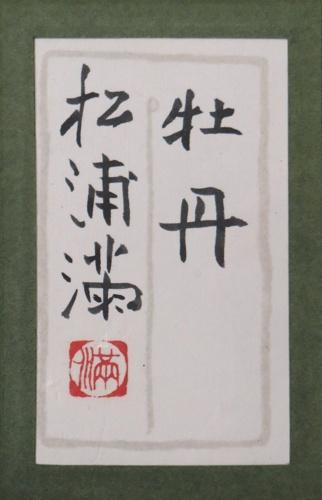 牡丹
松浦満
満